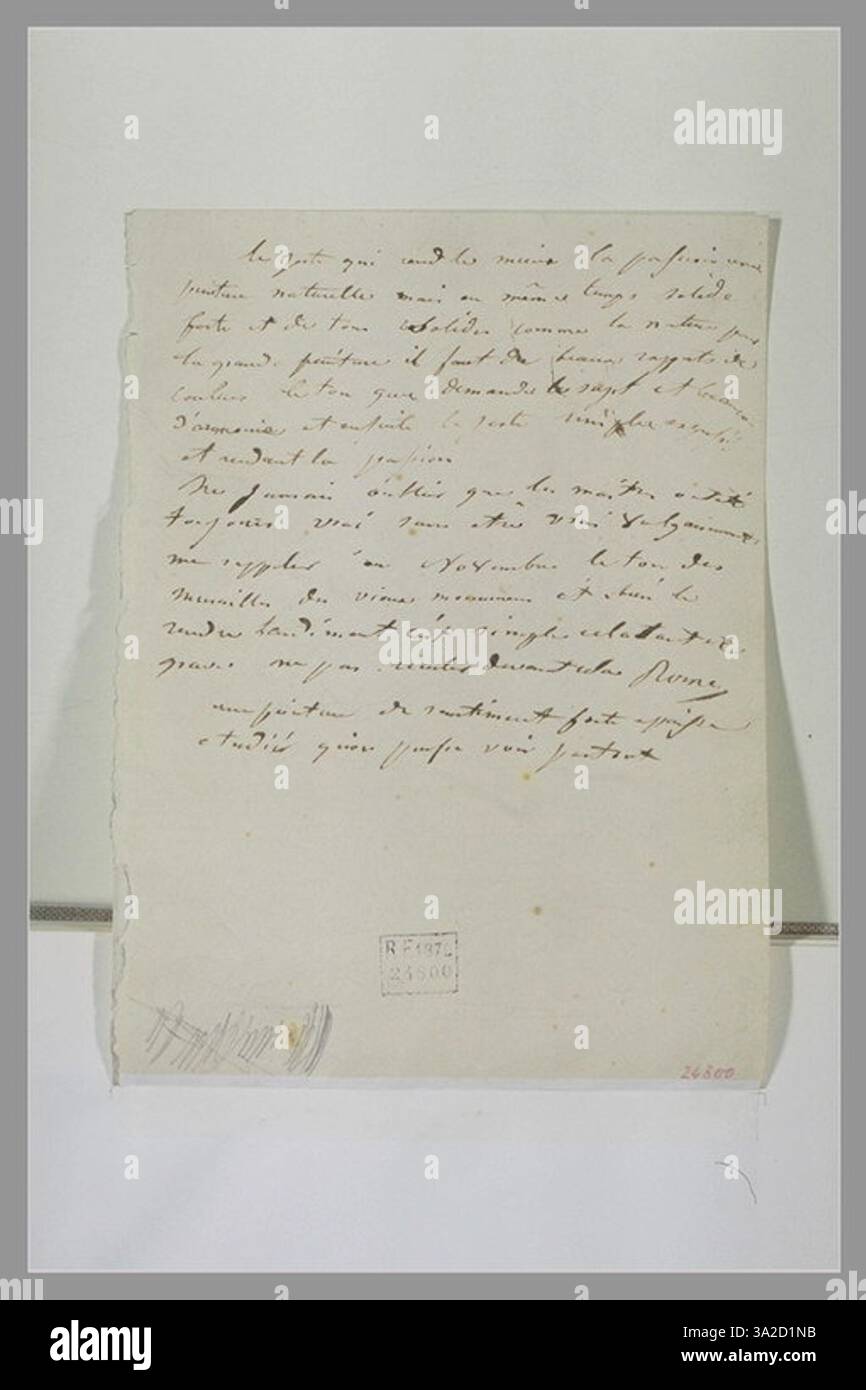 le geste qui rend le mieux la passion une
peinture naturelle mais en même temps solide
forte et de tons solides comme la nature pour
la grande peinture il faut de beaux rapports de
couleur le ton que demande le sujet et
d'armonie et ensuite le geste simple
et rendant la passion
Ne jamais oublier que les maitres ont été
toujours vrai sans être vrai vulgairement
me rappeler en Novembre le ton des
murailles des vieux monumens et bien le
rendre hardiment simple éclatant et
grave ne pas reculer devant cela Rome
une peinture de sentiment forte épaisse
etudié qu'on puisse voir partout
R F 1870
24600
24800
alamy
Image ID: 3A2D1NB
www.alamy.com